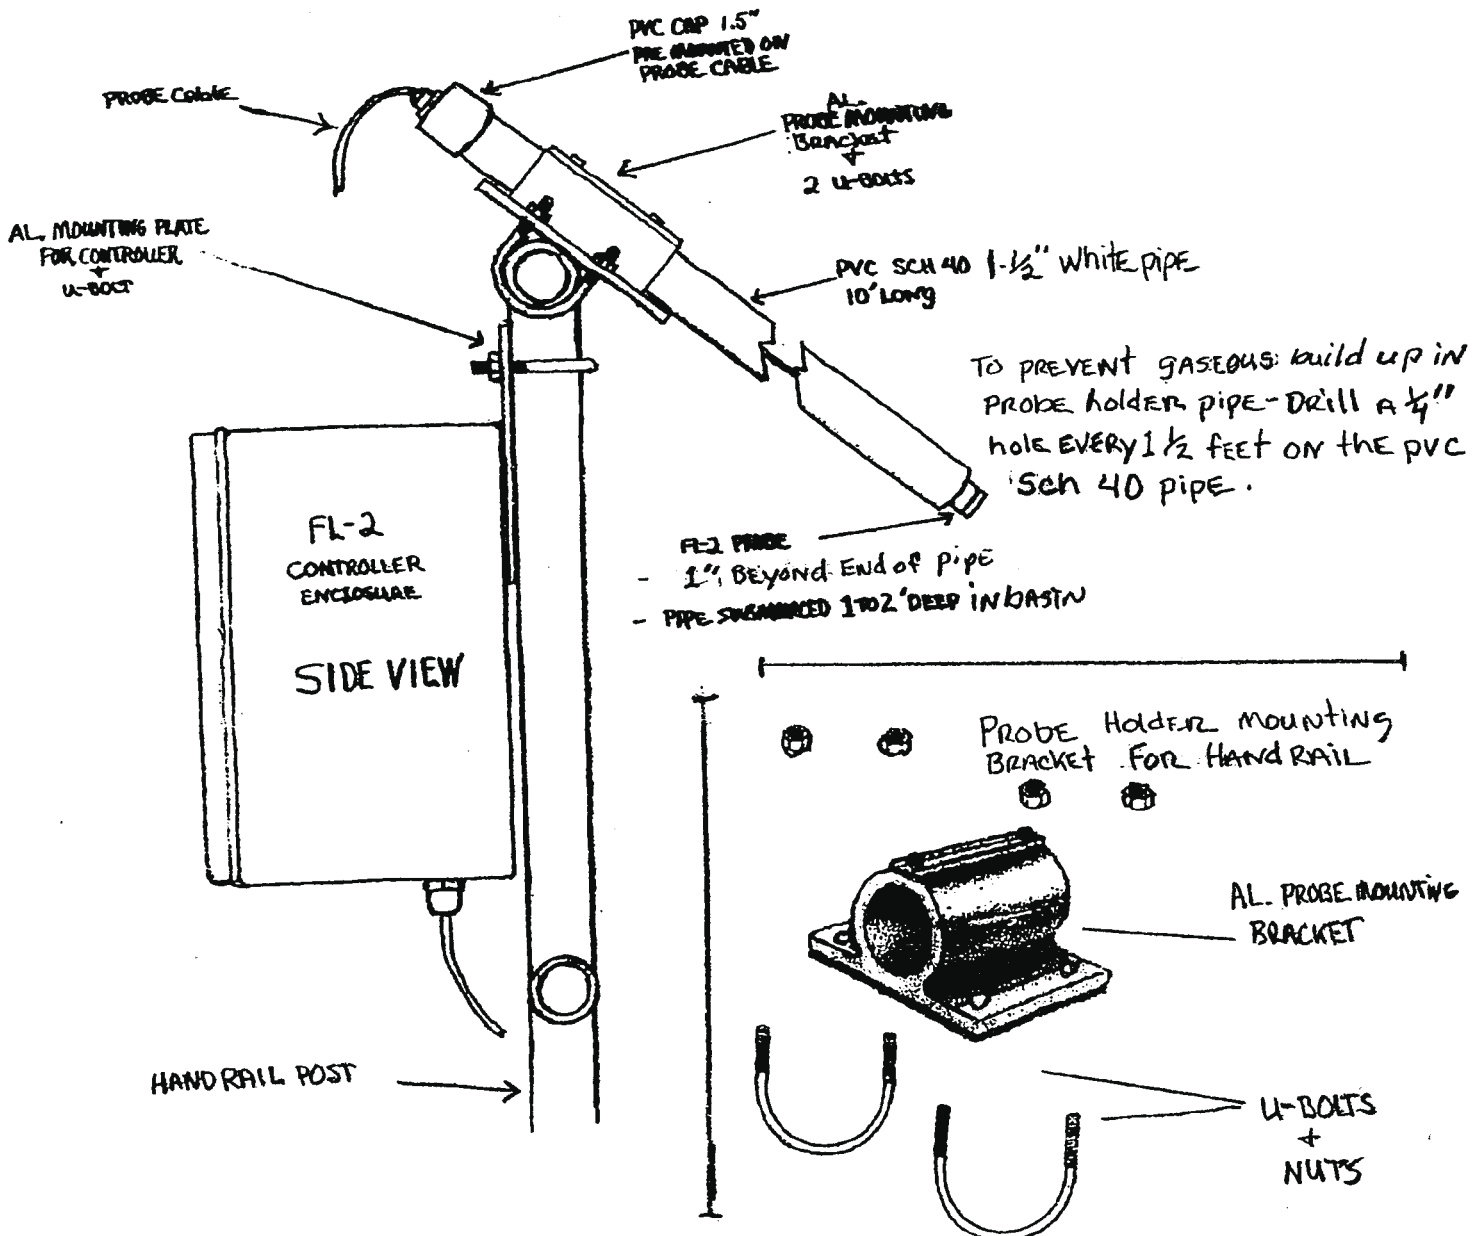 PVC CAP 1.5"
PRE MOUNTED ON
PROBE CABLE
PROBE CABLE
AL.
PROBE MOUNTING
BRACKET
+
2 U-BOLTS
AL. MOUNTING PLATE
FOR CONTROLLER
+
U-BOLT
PVC SCH 40 1-1/2" White pipe
10' LONG
TO PREVENT gASEOUS build up in
PROBE holder pipe - Drill A 1/4"
hole EVERY 1 1/2 feet ON thE pvc
Sch 40 pipe.
FL-2
CONTROLLER
ENCLOSURE
SIDE VIEW
FL-2 PROBE
- 1" Beyond End of pipe
- PIPE SUBMERGED 1 TO 2' DEEP in basin
PROBE HOLDER MOUNTING
BRACKET FOR HANDRAIL
AL. PROBE MOUNTING
BRACKET
HANDRAIL POST
U-BOLTS
+
NUTS